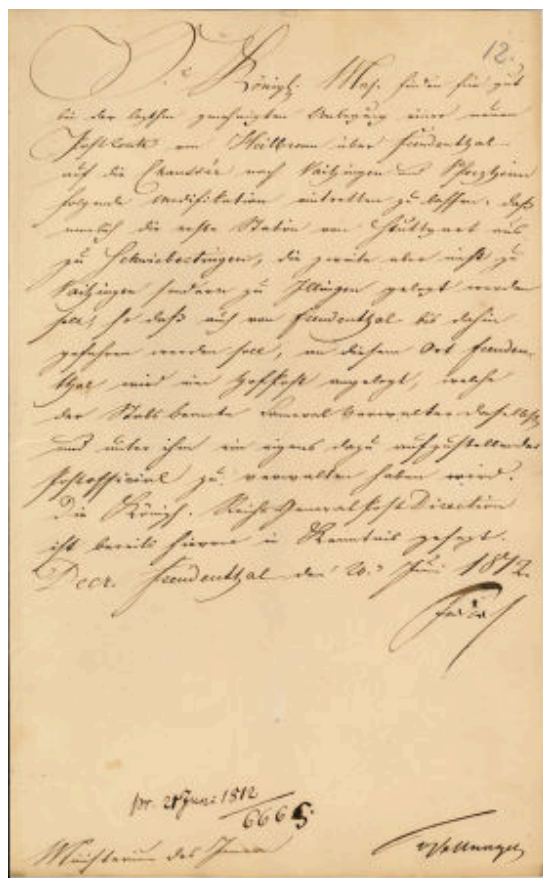 12.
Se. Königl. Maj. finden für gut
bei der letzthin genehmigten Anlegung einer neuen
Postroute von Heilbronn über Freudenthal
auf die Chaussée nach Vaihingen und Pforzheim
folgende Modifikation eintretten zu lassen, daß
nemlich die erste Station von Stuttgart aus
zu Schwieberdingen, die zweite aber nicht zu
Vaihingen sondern zu Illingen gelegt werden
soll, so daß auch von Freudenthal bis dahin
gefahren werden soll, an diesem Ort Freuden-
thal wird ein Hofpost angelegt, welche
der Stabsbeamte Cameralverwalter daselbst,
und unter ihm ein eigens dazu aufzustellender
Postofficial zu verwalten haben wird.
Die Königl. Reichs General Post Direction
ist bereits hievon in Kenntnis gesezt.
Decr. Freudenthal den 20. Juni 1812.
pr. 21 Juni 1812
6665
Ministerium des Innern
vVellnagel